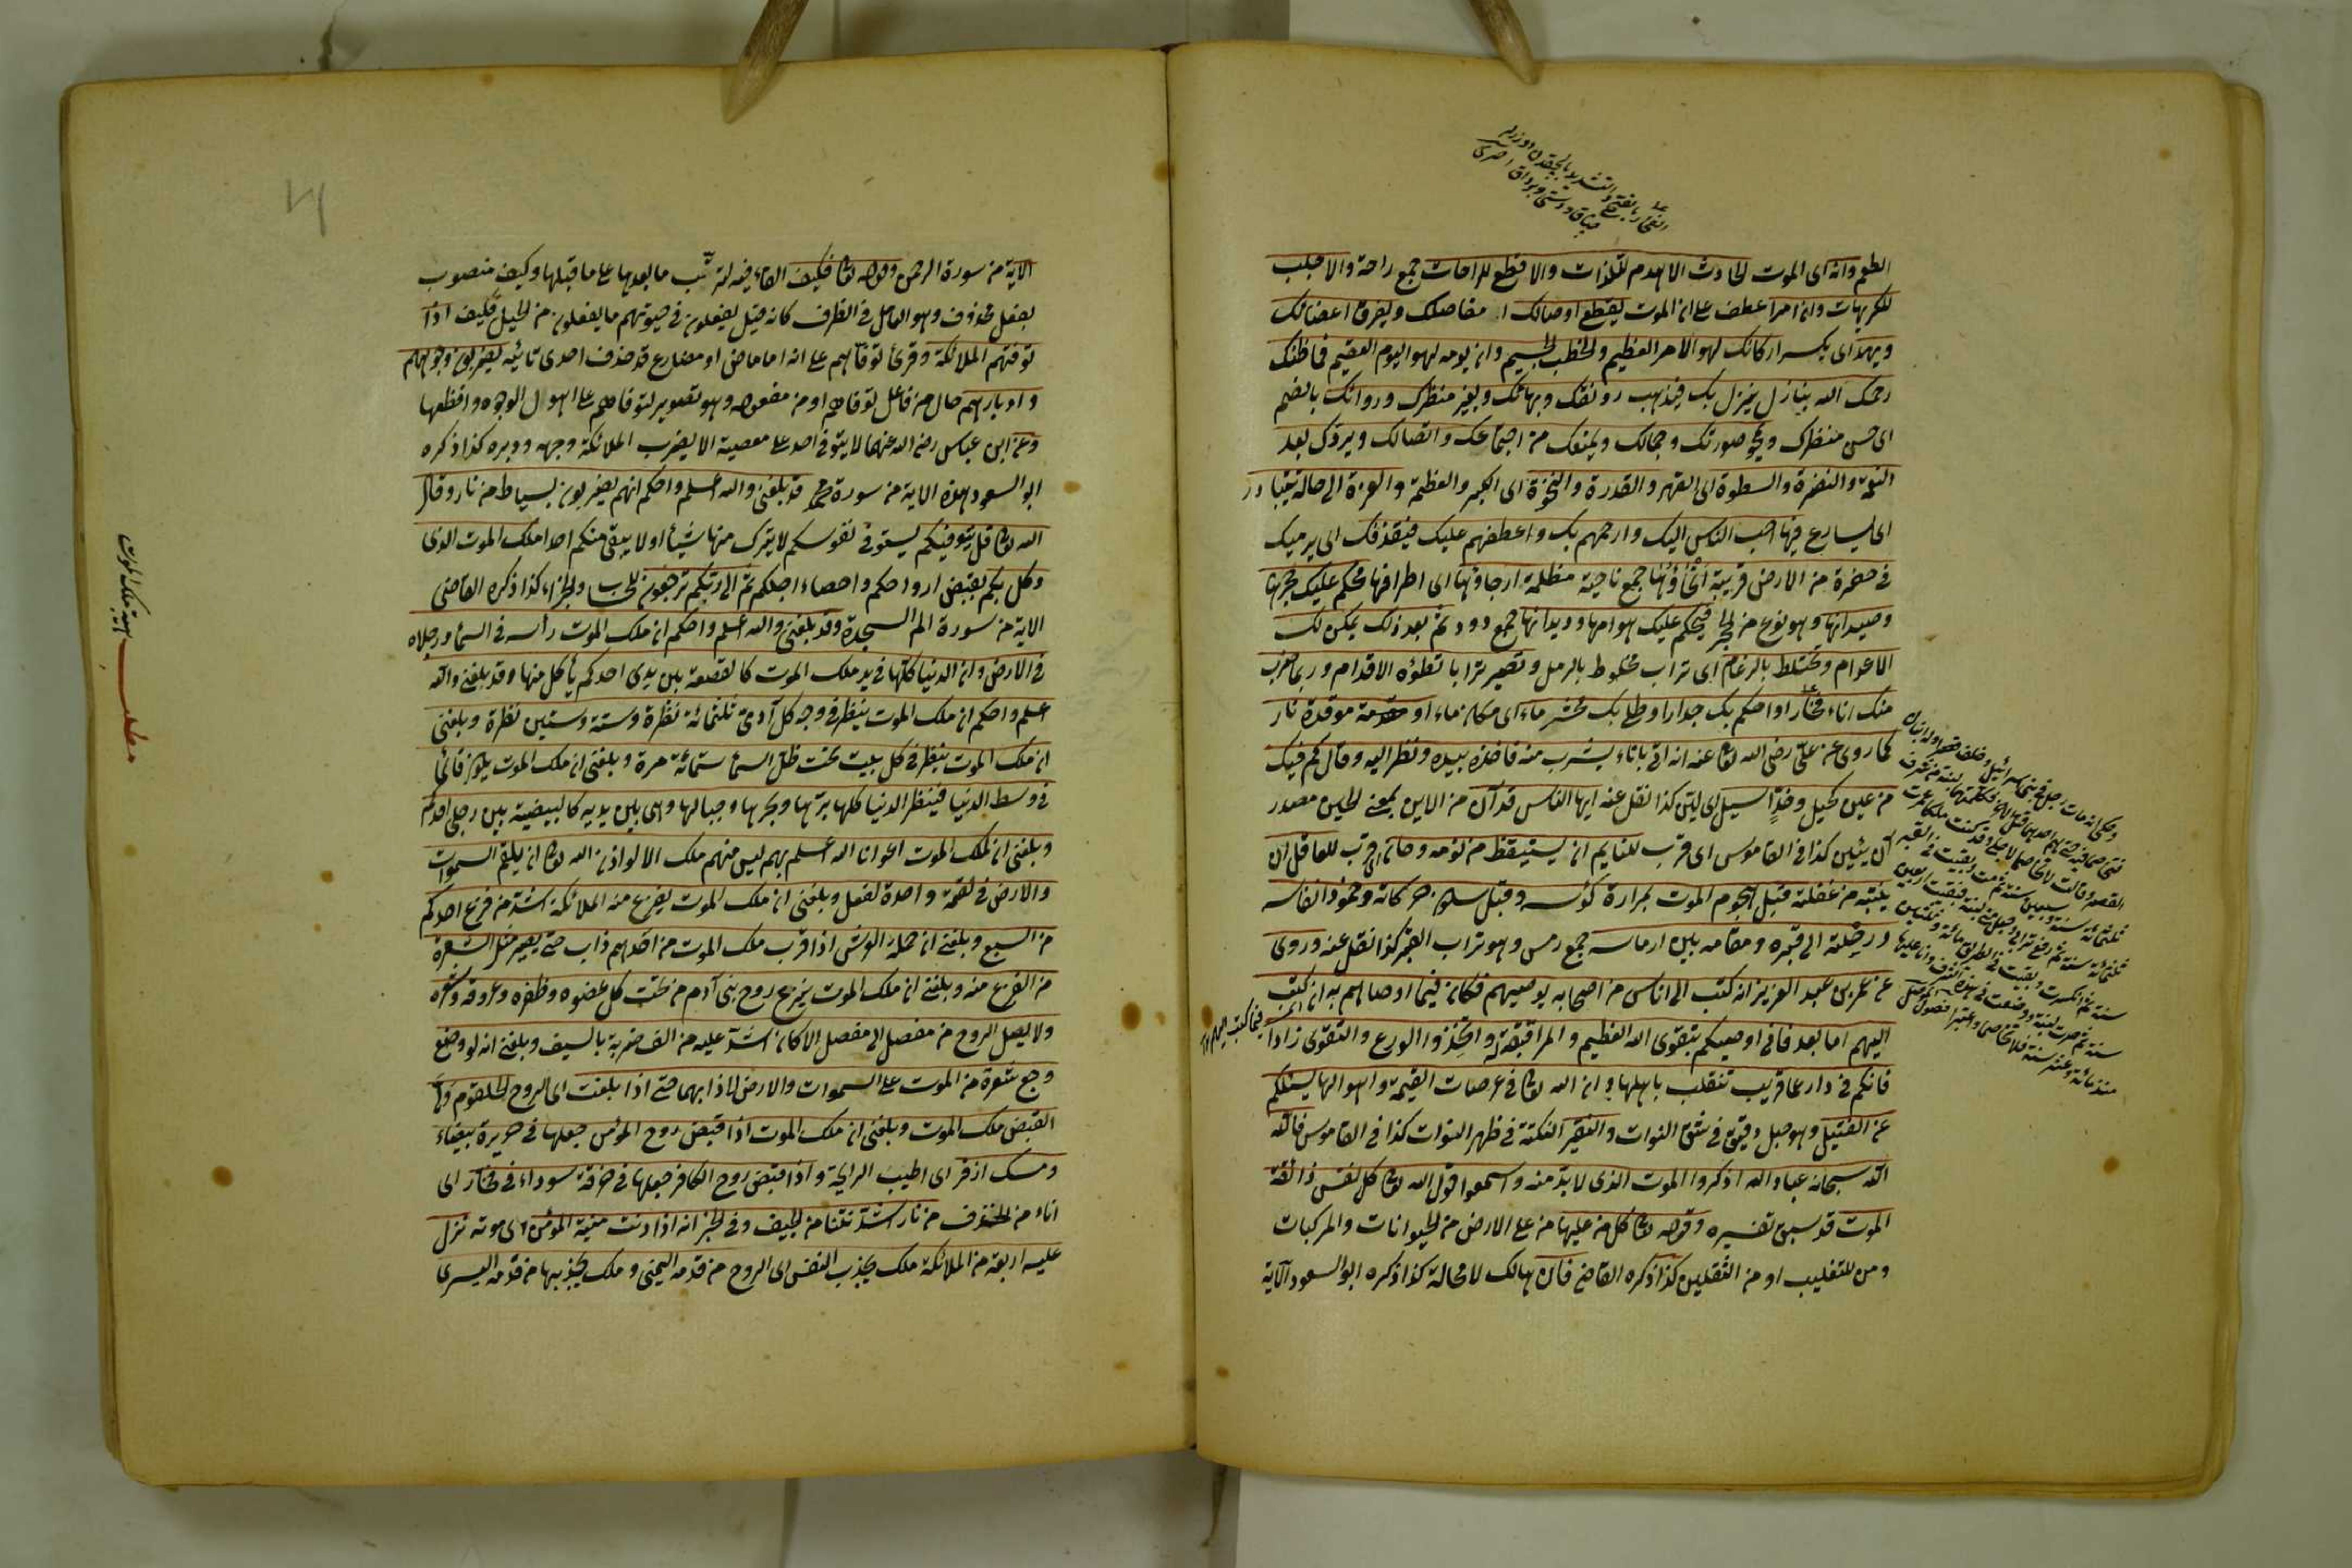 الطعم وانه اى الموت الحادث الاهدم للذات والاقطع للراحات جمع راحة والاجلب
للكريهات وان امرا عطف على ان الموت يقطع اوصالك اى مفاصلك ويفرق اعضائك
ويهد اى يكسر اركانك لهو الامر العظيم والخطب الجسيم وان يومه لهو اليوم العقيم فما ظنك
رحمك الله بنازل ينزل بك فيذهب رونقك وبهائك ويغير منظرك وروائك بالضم
اى حسن منظرك ويمحو صورتك وجمالك ويمنعك من اجتماعك واتصالك ويردك بعد
النعمة والنضرة والسطوة اى القهر والقدرة والنخوة اى الكبر والعظمة والعزة الى حالة يتبادر
اى يسارع فيها احب الناس اليك وارحمهم بك واعطفهم عليك فيقذفك اى يرميك
فى حفرة من الارض قريبة انحاؤها جمع ناحية مظلمة ارجاؤها اى اطرافها محكم عليك حجرها
وصيدانها وهو نوع من الحجر فيحكم عليك هوامها وديدانها جمع دود ثم بعد ذلك يمكن لك
الاعوام وتختلط بالرغام اى تراب مخلوط بالرمل وتصير ترابا تطؤه الاقدام وربما ضرب
منك اناء فخار او احكم بك جدار او طلى بك محتر ماء اى مكان ماء او موقدة نار
كما روى عن على رضى الله تعالى عنه انه اتى باناء ليشرب منه فاخذه بيده ونظر اليه وقال كم فيك
من عين كحيل وخد اسيل اى لين كذا نقل عنه ايها الناس قد آن من الاين بمعنى الحين مصدر
آن يئين كذا فى القاموس اى قرب للنايم ان يستيقظ من نومه وحان اى قرب للعاقل ان
ينتبه من غفلته قبل هجوم الموت بمرارة كؤسه وقبل سكون حركاته وخمود انفاسه
ورحلته الى قبره ومقامه بين ارماسه جمع رمس وهو تراب القبر كذا نقل عنه وروى
عن عمر بن عبد العزيز انه كتب الى اناس من اصحابه يوصيهم فكان فيما اوصاهم به ان كتب
اليهم اما بعد فانى اوصيكم بتقوى الله العظيم والمراقبة له واتخذوا الورع والتقوى زادا
فانكم فى دار عما قريب تنقلب باهلها وان الله تعالى فى عرصات القيمة واهوالها يسئلكم
عن الفتيل وهو حبل دقيق فى شق النوات والنقير النكتة فى ظهر النوات كذا فى القاموس فالله
الله سبحانه عباد الله اذكروا الموت الذى لا بد منه واسمعوا قول الله تعالى كل نفس ذائقة
الموت قد سبق تفسيره وقوله تعالى كل من عليها من على الارض من الحيوانات والمركبات
ومن للتغليب او من الثقلين كذا ذكره القاضى فان هالك لا محالة كذا ذكره ابو السعود الآية
الاية من سورة الرحمن وقوله تعالى فكيف الفاء فيه لترتب ما بعدها على ما قبلها وكيف منصوب
بفعل محذوف وهو العامل فى الظرف كانه قيل يفعلون فى حيوتهم ما يفعلون من الحيل فكيف اذا
توفتهم الملائكة وقرئ توفاهم على انه اما ماض او مضارع قد حذف احدى تائيه يضربون وجوههم
وادبارهم حال من فاعل توفاهم او من مفعوله وهو تصوير لتوفاهم على اهوال الوجوه وافظعها
وعن ابن عباس رضى الله عنهما لا يتوفى احد على معصية الا يضرب الملائكة وجهه ودبره كذا ذكره
ابو السعود هذه الاية من سورة محمد قد بلغنى والله اعلم واحكم انهم يضربون بسياط من نار وقال
الله تعالى قل يتوفيكم يستوفى نفوسكم لا يترك منها شيأ او لا يبقى منكم احدا ملك الموت الذى
وكل بكم بقبض ارواحكم واحصاء اجلكم ثم الى ربكم ترجعون للحساب والجزاء كذا ذكره القاضى
الاية من سورة الم السجدة وقد بلغنى والله اعلم واحكم ان ملك الموت رأسه فى السماء ورجلاه
فى الارض وان الدنيا كلها فى يد ملك الموت كالقصعة بين يدى احدكم يأكل منها وقد بلغنى والله
اعلم واحكم ان ملك الموت ينظر فى وجه كل آدمى ثلثمائة نظرة وستة وستين نظرة وبلغنى
ان ملك الموت ينظر فى كل بيت تحت ظل السماء ستمائة مرة وبلغنى ان ملك الموت يكون قائما
فى وسط الدنيا فينظر الدنيا كلها برها وبحرها وجبالها وهى بين يديه كالبيضة بين رجلى احدكم
وبلغنى ان لملك الموت اعوانا الله اعلم بهم ليس منهم ملك الا لو اذن الله تعالى ان يلتقم السموات
والارض فى لقمة واحدة لفعل وبلغنى ان ملك الموت يفزع منه الملائكة اشد من فزع احدكم
من السبع وبلغنى ان حملة العرش اذا قرب ملك الموت من احدهم ذاب حتى يصير مثل الشعرة
من الفزع منه وبلغنى ان ملك الموت ينزع روح بنى آدم من تحت كل عضوه وظفره وعروقه وشعره
ولا يصل الروح من مفصل الى مفصل الا كان اشد عليه من الف ضربة بالسيف وبلغنى انه لو وضع
وجع شعرة من الموت على السموات والارض لاذابهما حتى اذا بلغت اى الروح الحلقوم ولى
القبض ملك الموت وبلغنى ان ملك الموت اذا قبض روح المؤمن جعلها فى حريرة بيضاء
ومسك اذفر اى اطيب الرايحة واذا قبض روح الكافر جعلها فى خرقة سوداء فى فخار اى
اناء من الخذف من نار اشد نتنا من الجيف وفى الخبر انه اذا دنت منية المؤمن اى موته نزل
عليه اربعة من الملائكة ملك يجذب النفس اى الروح من قدمه اليمنى وملك يجذبها من قدمه اليسرى
مطلب هيبة ملك الموت